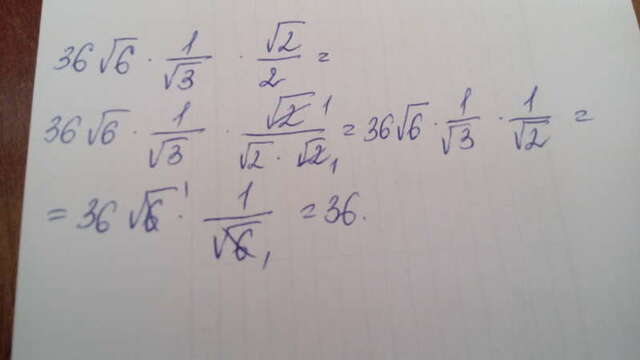 36√6 · 1/√3 · √2/2 =
36√6 · 1/√3 · √2 1/√2 · √2 1 = 36√6 · 1/√3 · 1/√2 =
= 36√6 1 · 1/√6 1 = 36.